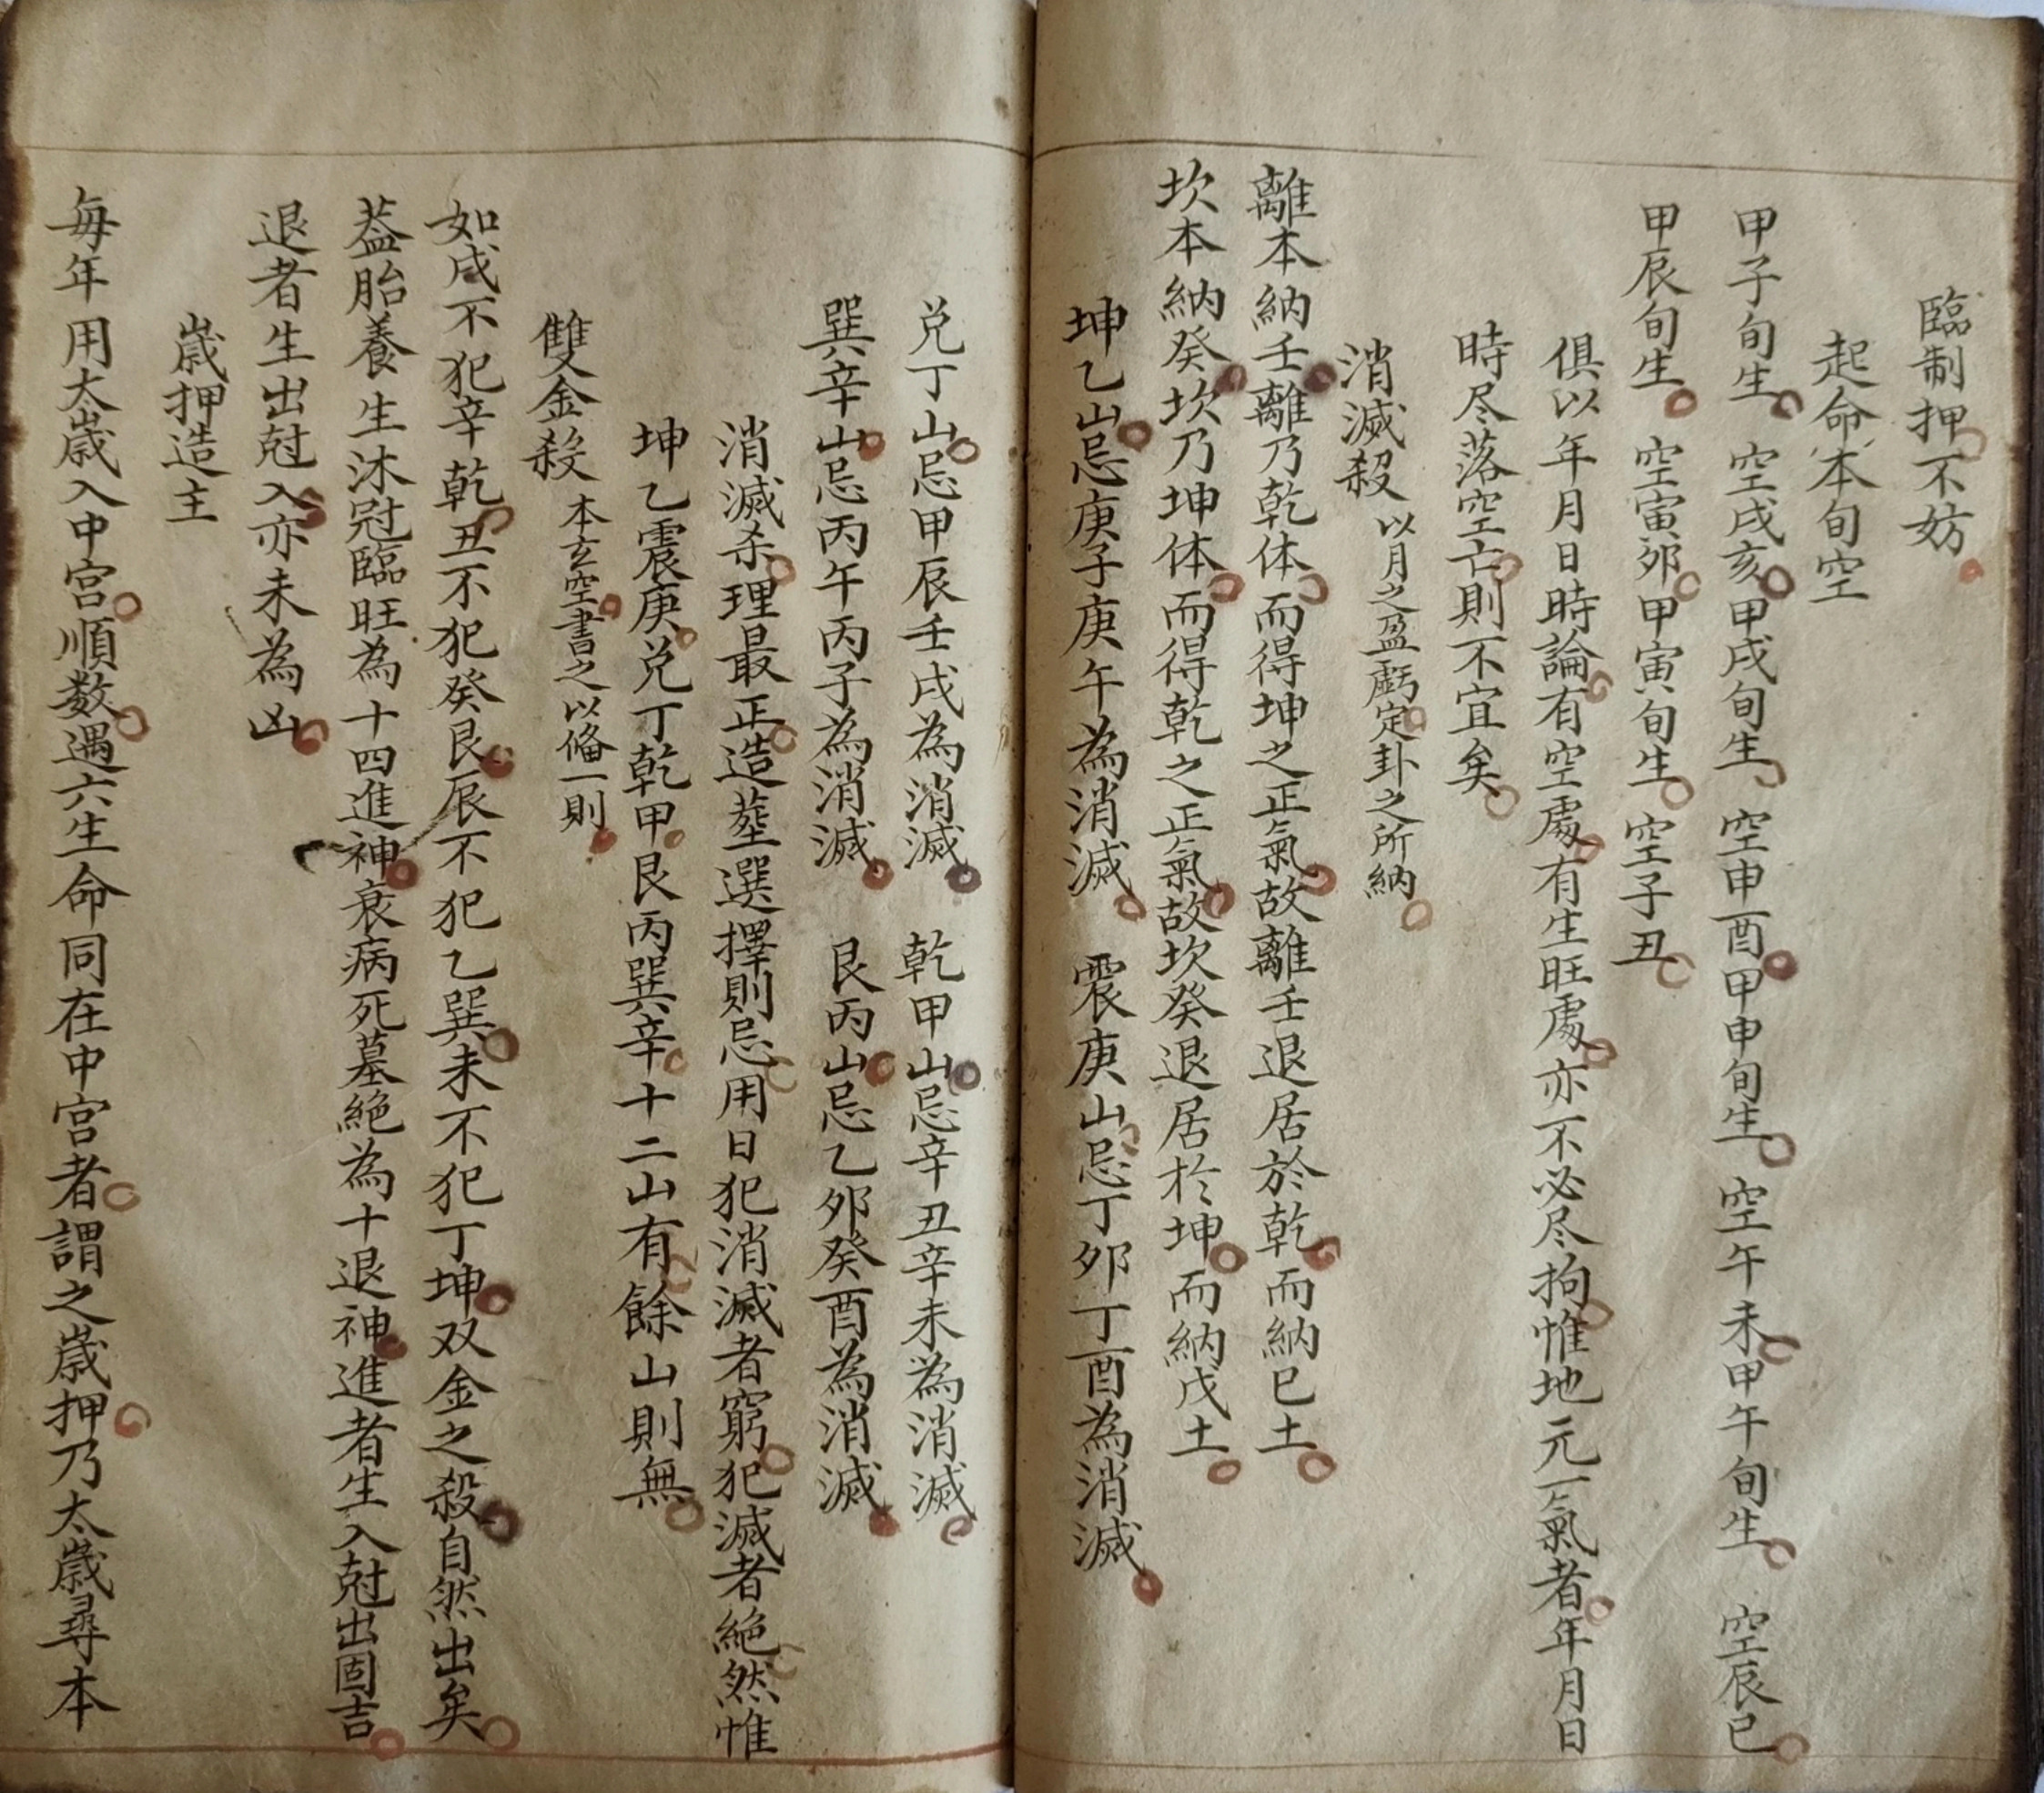 臨制押不妨
起命本旬空
甲子旬生 空戌亥甲戌旬生 空申酉甲申旬生 空午未甲午旬生 空辰巳
甲辰旬生 空寅夘甲寅旬生 空子丑
俱以年月日時論有空處有生旺處亦不必尽拘惟地元一氣者年月日
時尽落空亡則不宜矣
消滅殺 以月之盈虧定卦之所納
離本納壬離乃乾体而得坤之正氣故離壬退居於乾而納巳土
坎本納癸坎乃坤体而得乾之正氣故坎癸退居於坤而納戊土
坤乙山忌庚子庚午為消滅 震庚山忌丁夘丁酉為消滅
兑丁山忌甲辰壬戌為消滅 乾甲山忌辛丑辛未為消滅
巽辛山忌丙午丙子為消滅 艮丙山忌乙夘癸酉為消滅
消滅杀理最正造塟選擇則忌用日犯消滅者窮犯滅者絕然惟
坤乙震庚兑丁乾甲艮丙巽辛十二山有餘山則無
雙金殺 本玄空書之以俻一則
如戌不犯辛乾丑不犯癸艮辰不犯乙巽未不犯丁坤双金之殺自然出矣
葢胎養生沐冠臨旺為十四進神衰病死墓絕為十退神進者生入尅出固吉
退者生出尅入亦未為凶
歲押造主
每年用太歲入中宮順数遇六生命同在中宮者謂之歲押乃太歲尋本